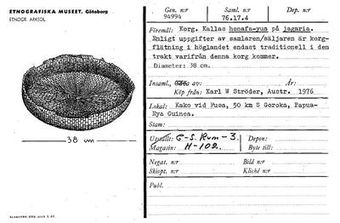 ETNOGRAFISKA MUSEET. Göteborg
ETNOGR ARKIV.
38 cm
Gen. n:r
94994
Saml. n:r
76.17.4
Dep. n:r
Föremål: Korg. Kallas henafa-yua på jagaria.
Enligt uppgifter av samlaren/säljaren är korg-
flätning i höglandet endast traditionell i den
trakt varifrån denna korg kommer.
Diameter: 38 cm.
Insaml., av:
Köpt från: Karl W Ströder, Austr. 1976
År:
Lokal: Kako vid Fusa, 50 km S Goroka, Papua-
Nya Guinea.
Stam:
Uppställt: E-S. Rum-3.
Depon:
Magasin: H-102.
Byte till:
Negat. n:r
Bild n:r
Skiopt. n:r
Kliché n:r
Publ.